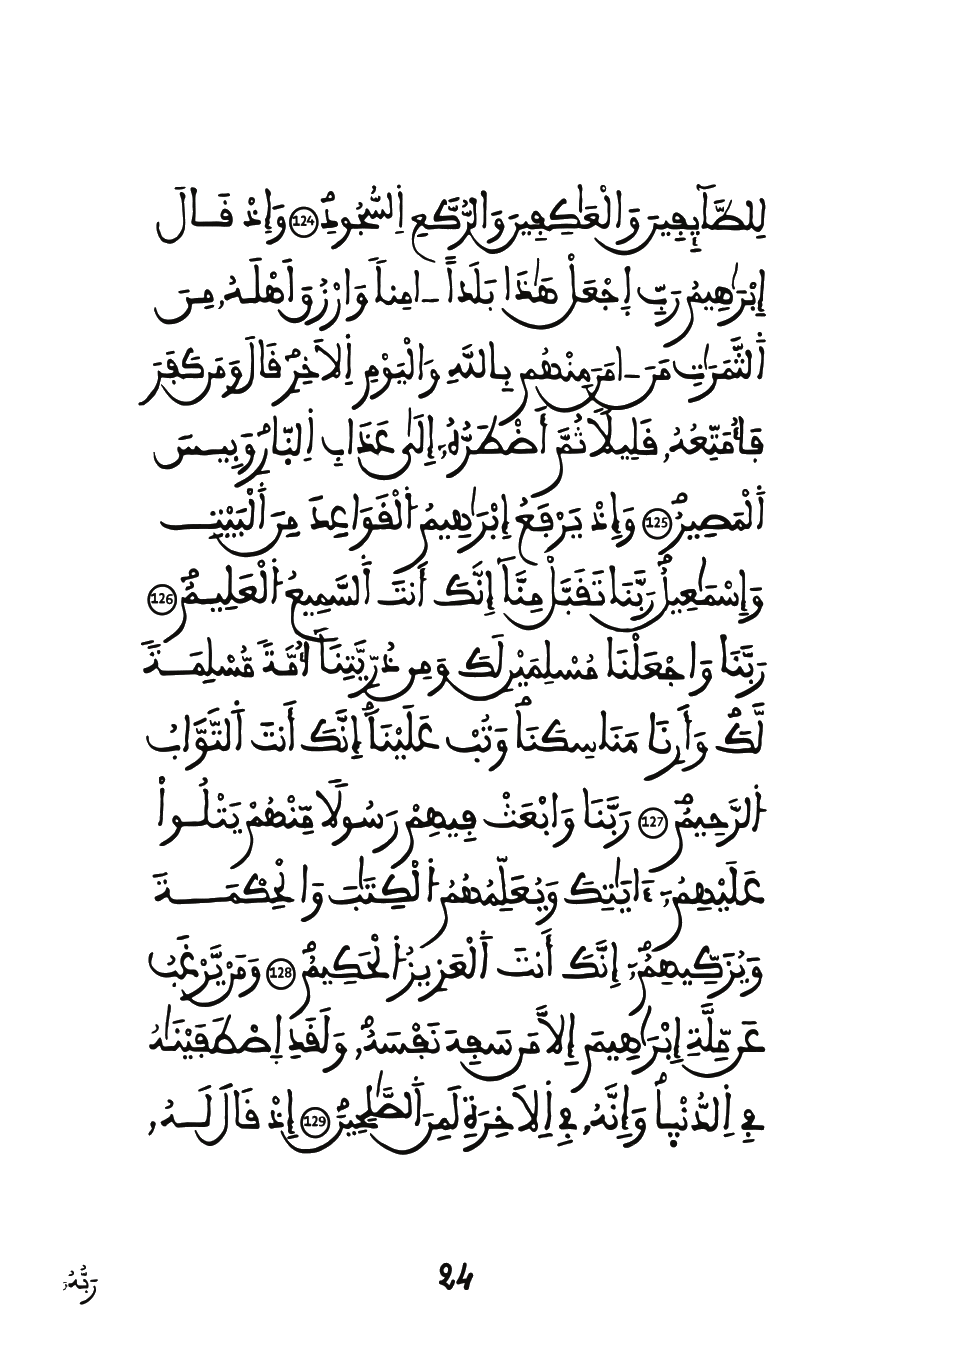 لِلطَّآئِفِينَ وَالْعَٰكِفِينَ وَالرُّكَّعِ اِ۬لسُّجُودِۖ 124 وَإِذْ قَالَ
إِبْرَٰهِيمُ رَبِّ اِ۪جْعَلْ هَٰذَا بَلَداً ـ اٰمِناٗ وَارْزُقَ اَهْلَهُۥ مِنَ
اَ۬لثَّمَرَٰتِ مَنَ ـ اٰمَنَ مِنْهُم بِاللَّهِ وَالْيَوْمِ اِ۬لَاخِرِۖ قَالَ وَمَن كَفَرَ
فَأُمَتِّعُهُۥ قَلِيلاٗ ثُمَّ أَضْطَرُّهُۥٓ إِلَىٰ عَذَابِ اِ۬لنّ۪ارِۖ وَبِيسَ
اَ۬لْمَصِيرُۖ 125 وَإِذْ يَرْفَعُ إِبْرَٰهِيمُ اُ۬لْقَوَاعِدَ مِنَ اَ۬لْبَيْتِ
وَإِسْمَٰعِيلُۖ رَبَّنَا تَقَبَّلْ مِنَّآۖ إِنَّكَ أَنتَ اَ۬لسَّمِيعُ اُ۬لْعَلِيمُۖ 126
رَبَّنَا وَاجْعَلْنَا مُسْلِمَيْنِ لَكَ وَمِن ذُرِّيَّتِنَآ أُمَّةٗ مُّسْلِمَةٗ
لَّكَۖ وَأَرِنَا مَنَاسِكَنَاۖ وَتُبْ عَلَيْنَآۖ إِنَّكَ أَنتَ اَ۬لتَّوَّابُ
اُ۬لرَّحِيمُۖ 127 رَبَّنَا وَابْعَثْ فِيهِمْ رَسُولاٗ مِّنْهُمْ يَتْلُواْ
عَلَيْهِمُۥٓ ءَايَٰتِكَ وَيُعَلِّمُهُمُ اُ۬لْكِتَٰبَ وَالْحِكْمَةَ
وَيُزَكِّيهِمُۥٓۖ إِنَّكَ أَنتَ اَ۬لْعَزِيزُ اُ۬لْحَكِيمُۖ 128 وَمَنْ يَّرْغَبُ
عَن مِّلَّةِ إِبْرَٰهِيمَ إِلاَّ مَن سَفِهَ نَفْسَهُۥۖ وَلَقَدِ اِ۪صْطَفَيْنَٰهُ
فِي اِ۬لدُّنْي۪اۖ وَإِنَّهُۥ فِي اِ۬لَاخِرَةِ لَمِنَ اَ۬لصَّٰلِحِينَۖ 129 إِذْ قَالَ لَهُۥ
24
رَبُّهُۥٓ